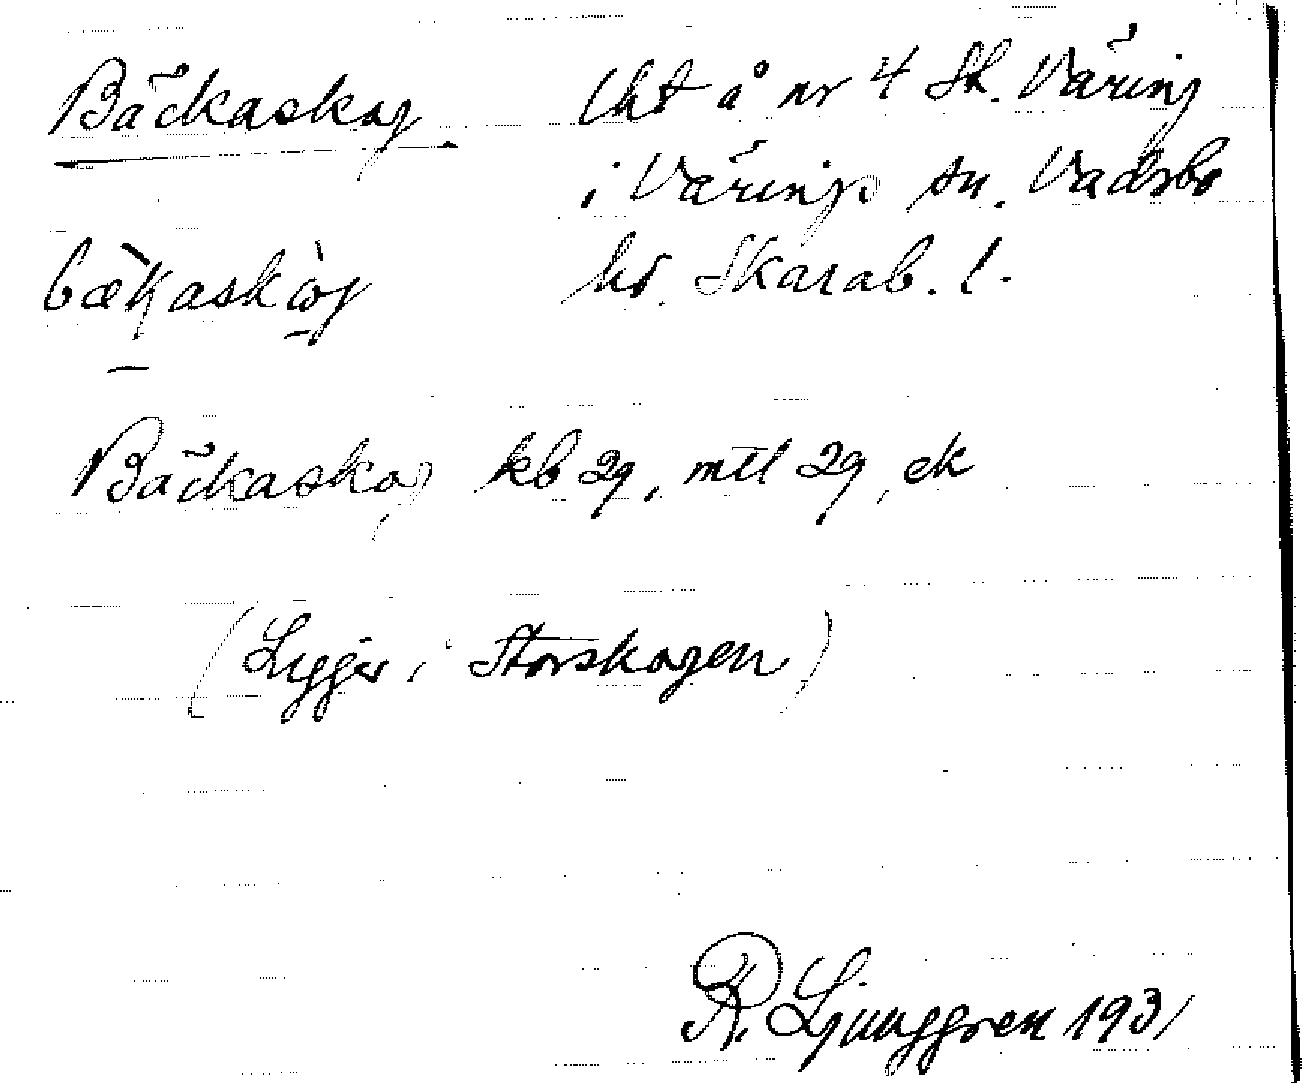 Bäckaskog lht å nr 4 St. Väring
i Värings sn. Vadsbo
bækaskòg hd. Skarab. l.
Bäckaskog kb 29, mtl 29, ek
(Ligger i Storskogen)
R. Ljunggren 1931